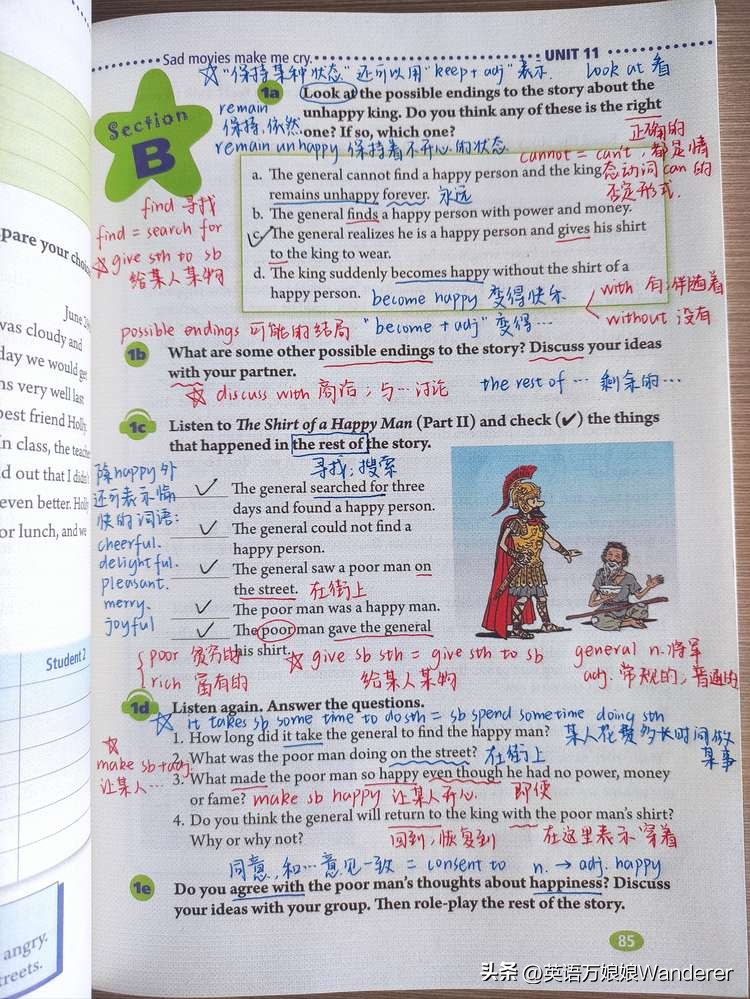 Sad movies make me cry.
UNIT 11
☆"保持某种状态"还可以用"keep + adj"表示. look at 看
Section B
1a Look at the possible endings to the story about the
unhappy king. Do you think any of these is the right
one? If so, which one?
remain
保持,依然
remain unhappy 保持着不开心的状态
正确的
cannot = can't, 都是情
态动词can的
否定形式.
a. The general cannot find a happy person and the king
remains unhappy forever. 永远
b. The general finds a happy person with power and money.
✓c. The general realizes he is a happy person and gives his shirt
to the king to wear.
d. The king suddenly becomes happy without the shirt of a
happy person. become happy 变得快乐
find 寻找
find = search for
☆give sth to sb
给某人某物
with 有;伴随着
without 没有
possible endings 可能的结局 "become + adj" 变得…
1b What are some other possible endings to the story? Discuss your ideas
with your partner.
☆ discuss with 商洽;与…讨论 the rest of … 剩余的…
1c Listen to The Shirt of a Happy Man (Part II) and check (✓) the things
that happened in the rest of the story.
寻找;搜索
除happy外
还可表示愉
快的词语:
cheerful.
delightful.
pleasant.
merry.
joyful
✓ The general searched for three
days and found a happy person.
✓ The general could not find a
happy person.
✓ The general saw a poor man on
the street. 在街上
✓ The poor man was a happy man.
✓ The poor man gave the general
his shirt.
poor 贫穷的
rich 富有的
☆ give sb sth = give sth to sb
给某人某物
general n. 将军
adj. 常规的,普通的
1d Listen again. Answer the questions.
☆ it takes sb some time to do sth = sb spend sometime doing sth
1. How long did it take the general to find the happy man? 某人花费多长时间做
某事
2. What was the poor man doing on the street? 在街上
☆
make sb + adj.
让某人…
3. What made the poor man so happy even though he had no power, money
or fame? make sb happy 让某人开心. 即使
4. Do you think the general will return to the king with the poor man's shirt?
Why or why not? 回到,恢复到 在这里表示穿着
同意,和…意见一致 = consent to n. → adj. happy
1e Do you agree with the poor man's thoughts about happiness? Discuss
your ideas with your group. Then role-play the rest of the story.
85
pare your choic
June 2
was cloudy and
day we would get
ns very well last
best friend Holly
In class, the teache
d out that I didn't
even better. Holly
or lunch, and we
Student 2
angry.
treets.
头条 @英语万娘娘Wanderer